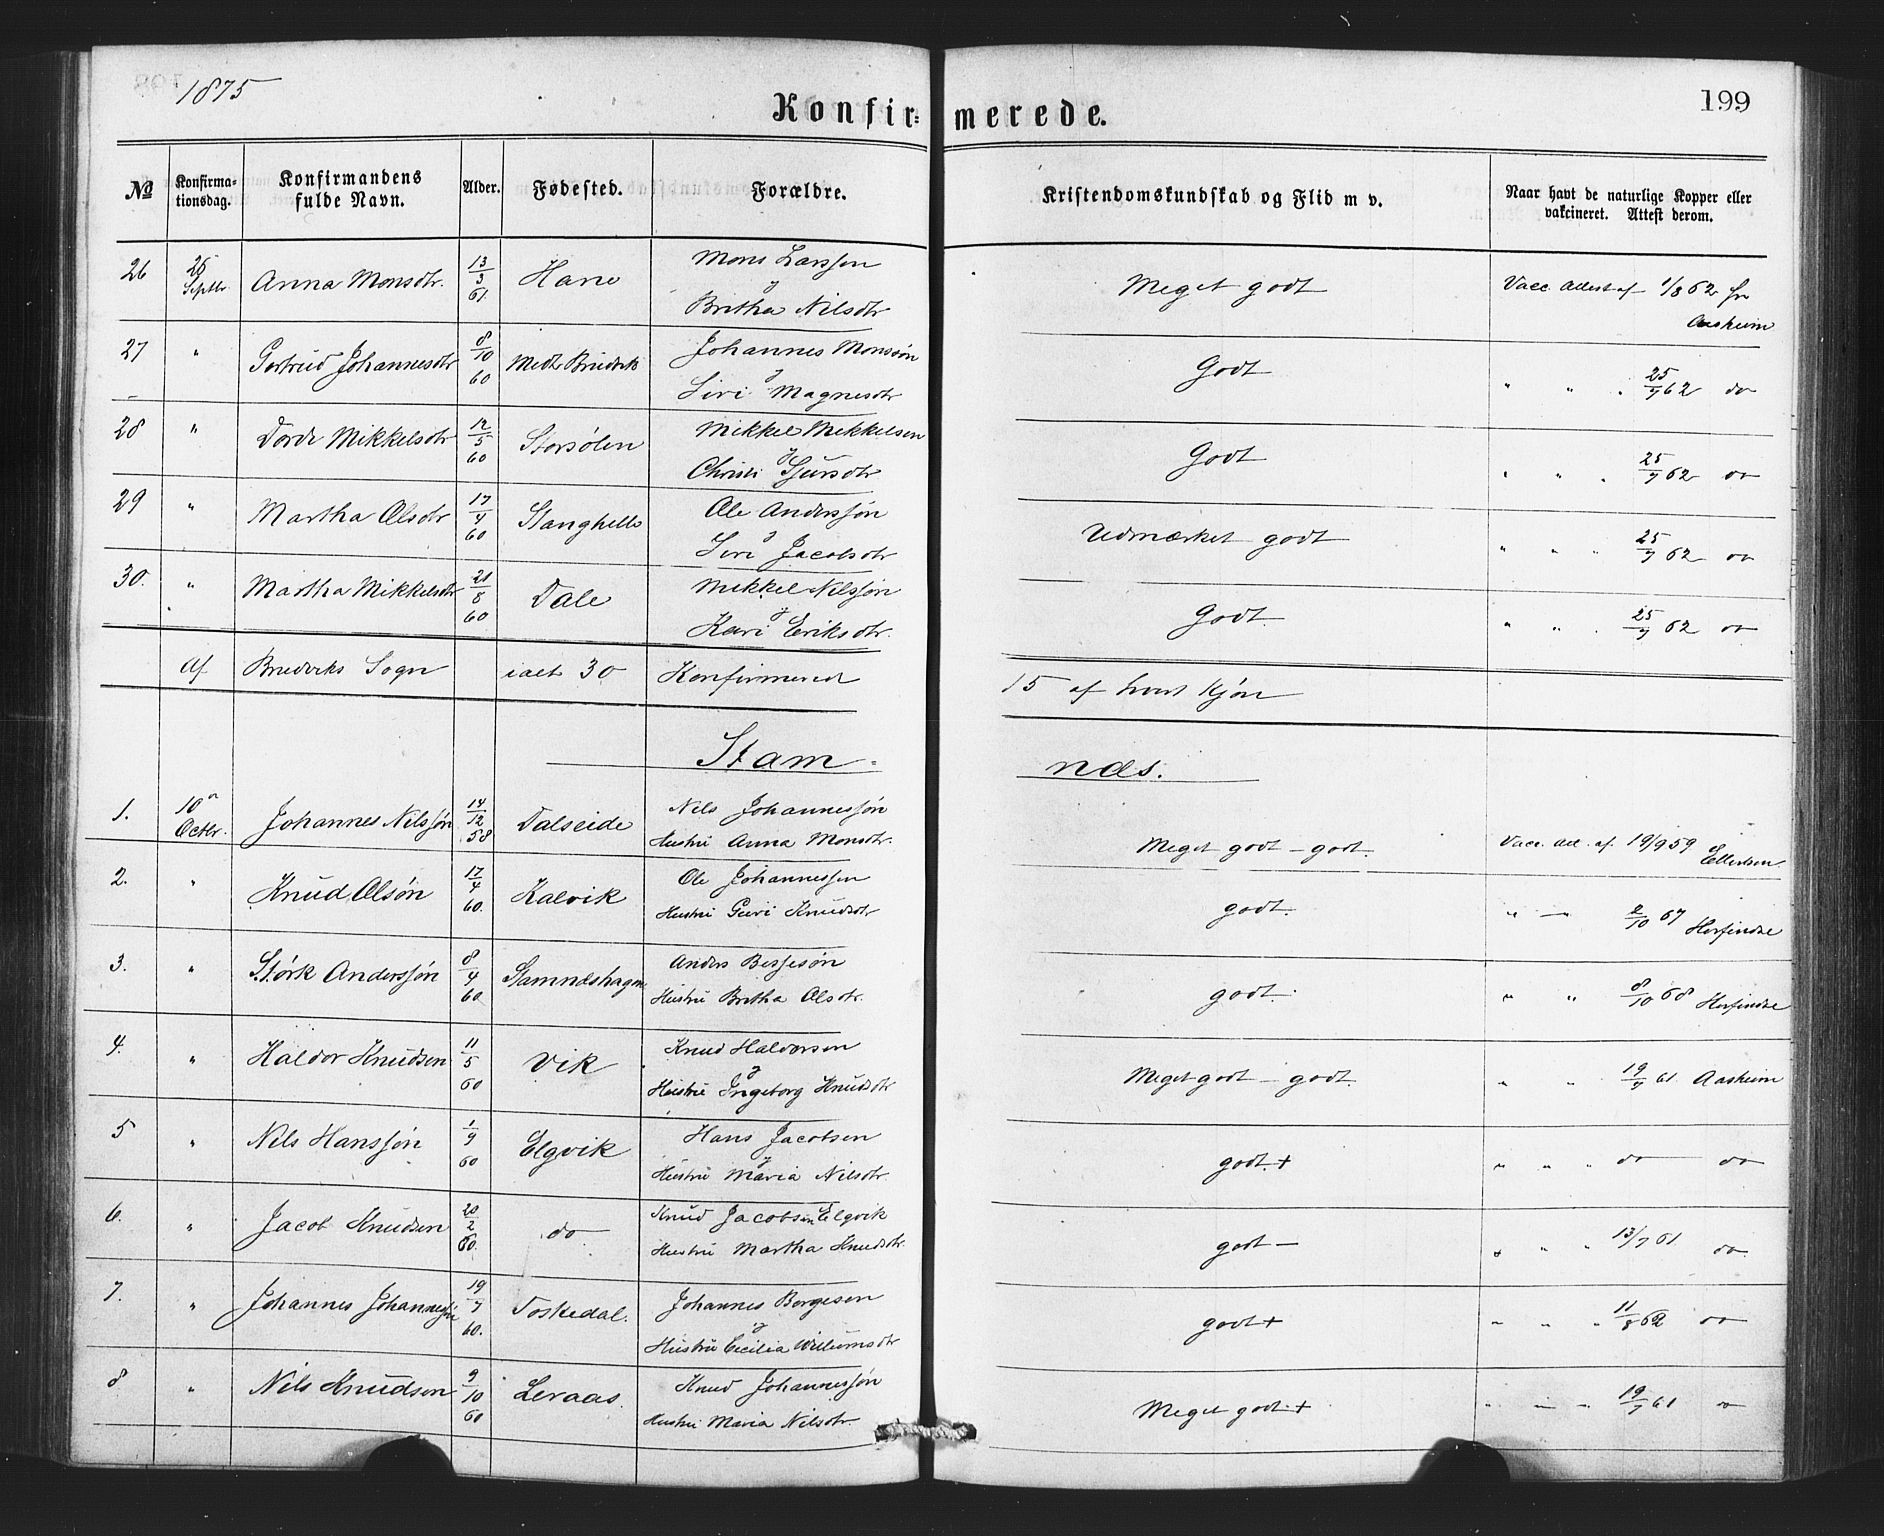 1875
Konfirmerede.
199
№ Konfirma-tionsdag. Konfirmandens fulde Navn. Alder. Fødested. Forældre. Kristendomskundskab og Flid m v. Naar havt de naturlige Kopper eller vakcineret. Attest derom.
26 26 Septbr Anna Monsdtr. 13/3 61. Hane Mons Larssen
og
Britha Nilsdtr Meget godt Vacc. Attest af 1/8 62 fra
Aasheim
27 " Gertrud Johannesdtr 8/10 60 Medh. Bruvik Johannes Monssøn
og
Siri Magnesdtr Godt " " " 25/7 62 do
28 " Dorde Mikkelsdtr 12/5 60 Storsølen Mikkel Mikkelsen
og
Christi Sjursdtr Godt " " " 25/7 62 do
29 " Martha Olsdtr 17/4 60 Stanghelle Ole Anderssøn
og
Siri Jacobsdtr Udmærket godt " " " 25/7 62 do
30. " Martha Mikkelsdtr 21/8 60 Dale Mikkel Nilssøn
og
Kari Eriksdtr. Godt. " " " 25/7 62 do
Af Bruviks Sogn ialt 30 Konfirmered 15 af hvert Kjøn
Stamnæs.
1. 10de Octbr. Johannes Nilssøn 14/12 58 Dalseide Nils Johannessøn
Hustru Anna Monsdtr. Meget godt - godt. Vacc. Att. af 19/9 59 Ellertsen
2. " Knud Olsøn 17/4 60. Kalvik Ole Johannessen
Hustru Guri Knudsdtr godt. " — 2/10 67 Herfindal
3. " Størk Anderssøn 8/4 60 Stamnæshagen Anders Bergesøn
Hustru Britha Olsdtr. godt. " " 8/10 68 Herfindal
4. " Haldor Knudsen 11/5 60 Vik Knud Haldorsen
og
Hustru Ingeborg Knudsdtr Meget godt - godt. " " 19/7 61 Aasheim
5 " Nils Hanssøn 1/9 60 Elgvik Hans Jacobsen
og
Hustru Maria Nilsdtr. godt. + " " " do do
6. " Jacob Knudsen 20/2 60. do Knud Jacobsen Elgvik
Hustru Martha Knudsdtr. godt — " " " 13/7 61. do.
7. " Johannes Johannessøn 19/7 60. Toskedal. Johannes Borgesen
og
Hustru Cicilia Willumsdtr godt + " " " 11/8 62 do
8 " Nils Knudsen 9/10 60 Leraas. Knud Johannessøn
Hustru Maria Nilsdtr. Meget godt + " " " 19/7 61 do